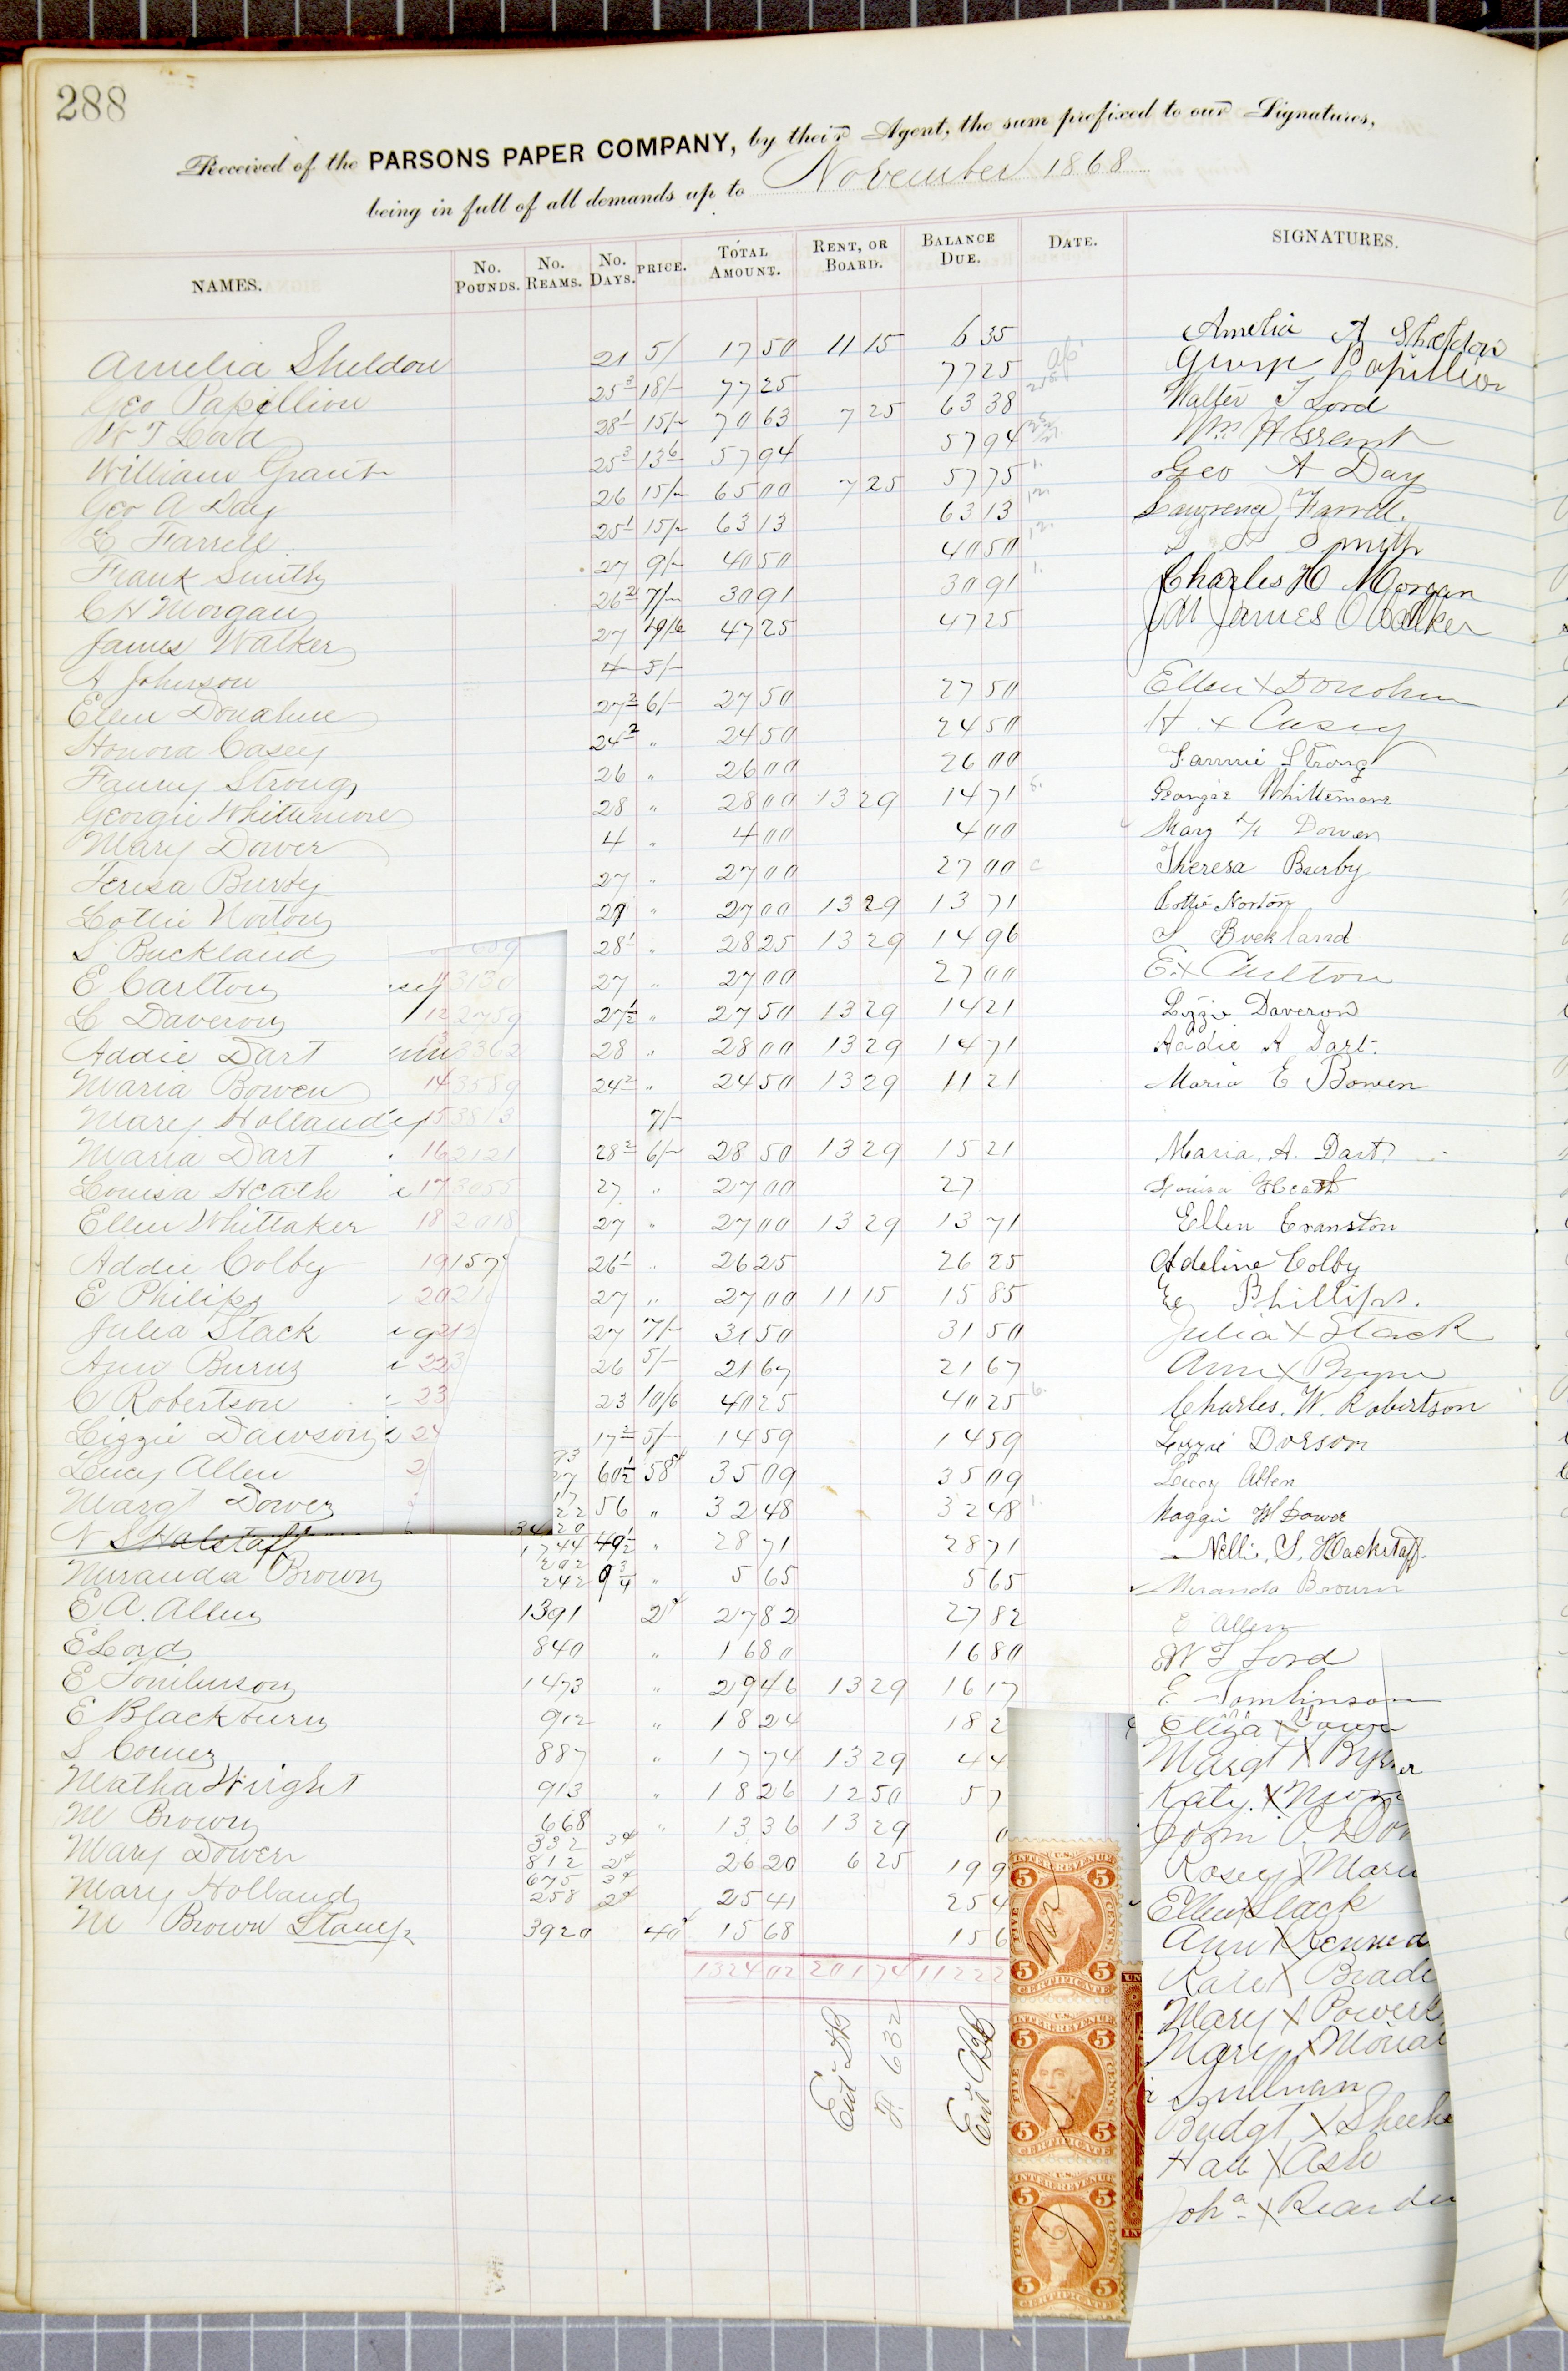 288
Received of the PARSONS PAPER COMPANY, by their Agent, the sum prefixed to our Signatures,
being in full of all demands up to November 1868
NAMES. No. POUNDS. No. REAMS. No. DAYS. PRICE. TOTAL AMOUNT. RENT, OR BOARD. BALANCE DUE. DATE. SIGNATURES.
Amelia Sheldon 21 5/ 17 50 11 15 6 35 Amelia A Sheldon
Geo Papillion 25 3 18/- 77 25 77 25 George Papillion
W T Lord 28 1 15/- 70 63 7 25 63 38 Walter T Lord
William Grant 25 3 13 6 57 94 57 94 Wm H Grant
Geo A Day 26 15/- 65 00 7 25 57 75 Geo A Day
L Farrell 25 1 15/- 63 13 63 13 Lawrence Farrell.
Frank Smith 27 9/- 40 50 40 50 Smith
C H Morgan 26 2 7/- 30 91 30 91 Charles H Morgan
James Walker 27 10/6 47 25 47 25 James Walker
A Johnson 4 5/-
Ellen Donahue 27 2 6/- 27 50 27 50 Ellen X Donohue
Honora Casey 24 2 " 24 50 24 50 H. x Casey
Fanny Strong 26 " 26 00 26 00 Fannie Strong
Georgie Whittemore 28 " 28 00 13 29 14 71 Georgie Whittemore
Mary Dower 4 " 4 00 4 00 Mary Dower
Teresa Burby 27 " 27 00 27 00 Theresa Burby
Lottie Norton 27 " 27 00 13 29 13 71 Lottie Norton
S Buckland 28 1 " 28 25 13 29 14 96 S Buckland
E Carlton 27 " 27 00 27 00 E x Carlton
L Daveron 27 1/2 " 27 50 13 29 14 21 Lizzie Daveron
Addie Dart 28 " 28 00 13 29 14 71 Addie A Dart.
Maria Bowen 24 2 " 24 50 13 29 11 21 Maria E Bowen
Mary Holland 7/-
Maria Dart 28 2 6/- 28 50 13 29 15 21 Maria. A. Dart.
Louisa Heath 27 " 27 00 27 Louisa Heath
Ellen Whittaker 27 " 27 00 13 29 13 71 Ellen Cranston
Addie Colby 26 1 " 26 25 26 25 Adeline Colby
E Philips 27 " 27 00 11 15 15 85 E Phillips.
Julia Stack 27 7/- 31 50 31 50 Julia X Stack
Ann Burns 26 5/- 21 67 21 67 Ann X Bryne
C Robertson 23 10/6 40 25 40 25 Charles. W. Robertson
Lizzie Dawson 17 2 5/- 14 59 14 59 Lizzie Dorson
Lucy Allen 60 1/2 58 35 09 35 09 Lucy Allen
Margt Dower 56 " 32 48 32 48 Maggie Dower
N S Halstaff 1744 49 1/2 " 28 71 28 71 Nellie. S. Hackstaff.
Miranda Brown 242 9 3/4 " 5 65 5 65 Miranda Brown
E A. Allen 1391 2 27 82 27 82 E Allen
E Lord 840 " 16 80 16 80 W T Lord
E Tomlinson 1473 " 29 46 13 29 16 17 E Tomlinson
E Blackburn 912 " 18 24 18 2 Eliza X
S Comez 887 " 17 74 13 29 4 4 Margt X
Matha Wright 913 " 18 26 12 50 5 7 Katy. X
M Brown 668 " 13 36 13 29 0 John O Do
Mary Dower 332 3 812 2 26 20 6 25 19 9 Rosey X
Mary Holland 675 3 258 2 25 41 25 4 Ellen X Slack
M Brown Stamp 3920 40 15 68 15 6 Ann X Kenned
1324 02 201 74 1122 2 Kate X Brade
Mary X Powers
Mary X
Sullivan
Bridgt X Sheeh
Hall X Ash
Joha X Rearden
F. 632
U.S. INTER. REVENUE 5 5 FIVE CENTS CERTIFICATE
U.S. INTER. REVENUE 5 5 FIVE CENTS CERTIFICATE
U.S. INTER. REVENUE 5 5 FIVE CENTS CERTIFICATE